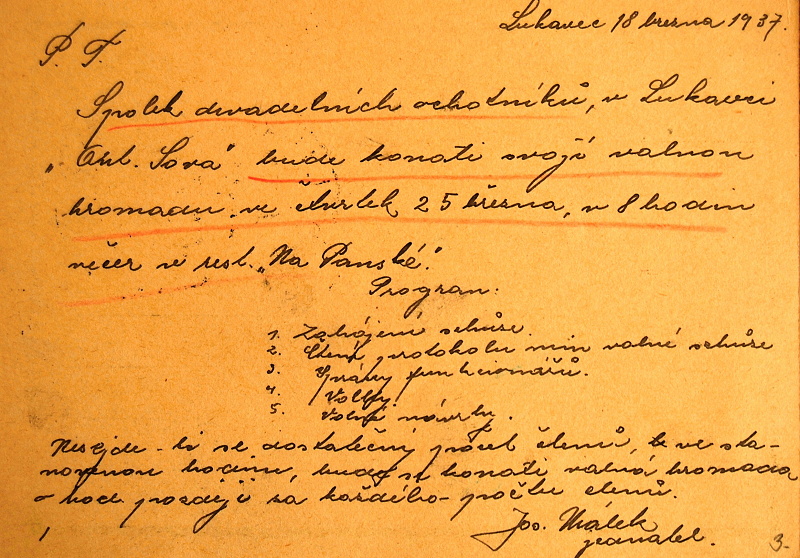 Lukavec 18 března 1937.
P. T.
Spolek divadelních ochotníků, v Lukavci
"Ant. Sova" bude konati svojí valnou
hromadu ve čtvrtek 25 března, v 8 hodin
večer v rest. "Na Panské".
Program:
1. Zahájení schůze.
2. Čtení protokolu min valné schůze
3. Zprávy funkcionářů.
4. Volby
5. Volné návrhy.
Nesejde-li se dostatečný počet členů, ve sta-
novenou hodinu, bude se konati valná hromada
o hod. později za každého počtu členů.
Jos. Málek
jednatel.
1
3.